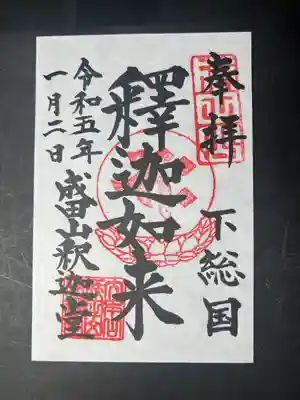 奉拝
下総国
釋迦如来
成田山釈迦堂
令和五年
一月二日